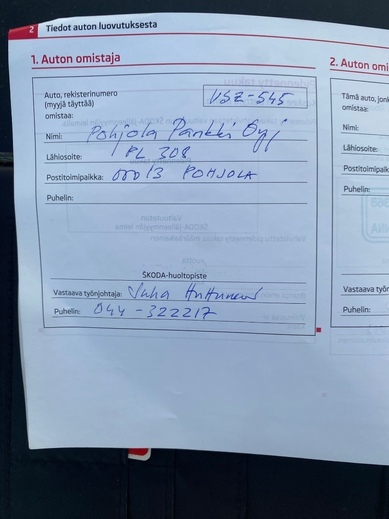 2 Tiedot auton luovutuksesta
1. Auton omistaja
Auto, rekisterinumero
(myyjä täyttää) VSZ-545
omistaa:
Nimi: Pohjola Pankki Oyj
Lähiosoite: PL 308
Postitoimipaikka: 00013 POHJOLA
Puhelin:
ŠKODA-huoltopiste
Vastaava työnjohtaja: Juha Huttunen
Puhelin: 044-322217
2. Auton omi
Tämä auto, jonk
omistaa:
Nimi:
Lähiosoite:
Postitoimipaik
Puhelin:
Vastaava työnj
Puhelin: